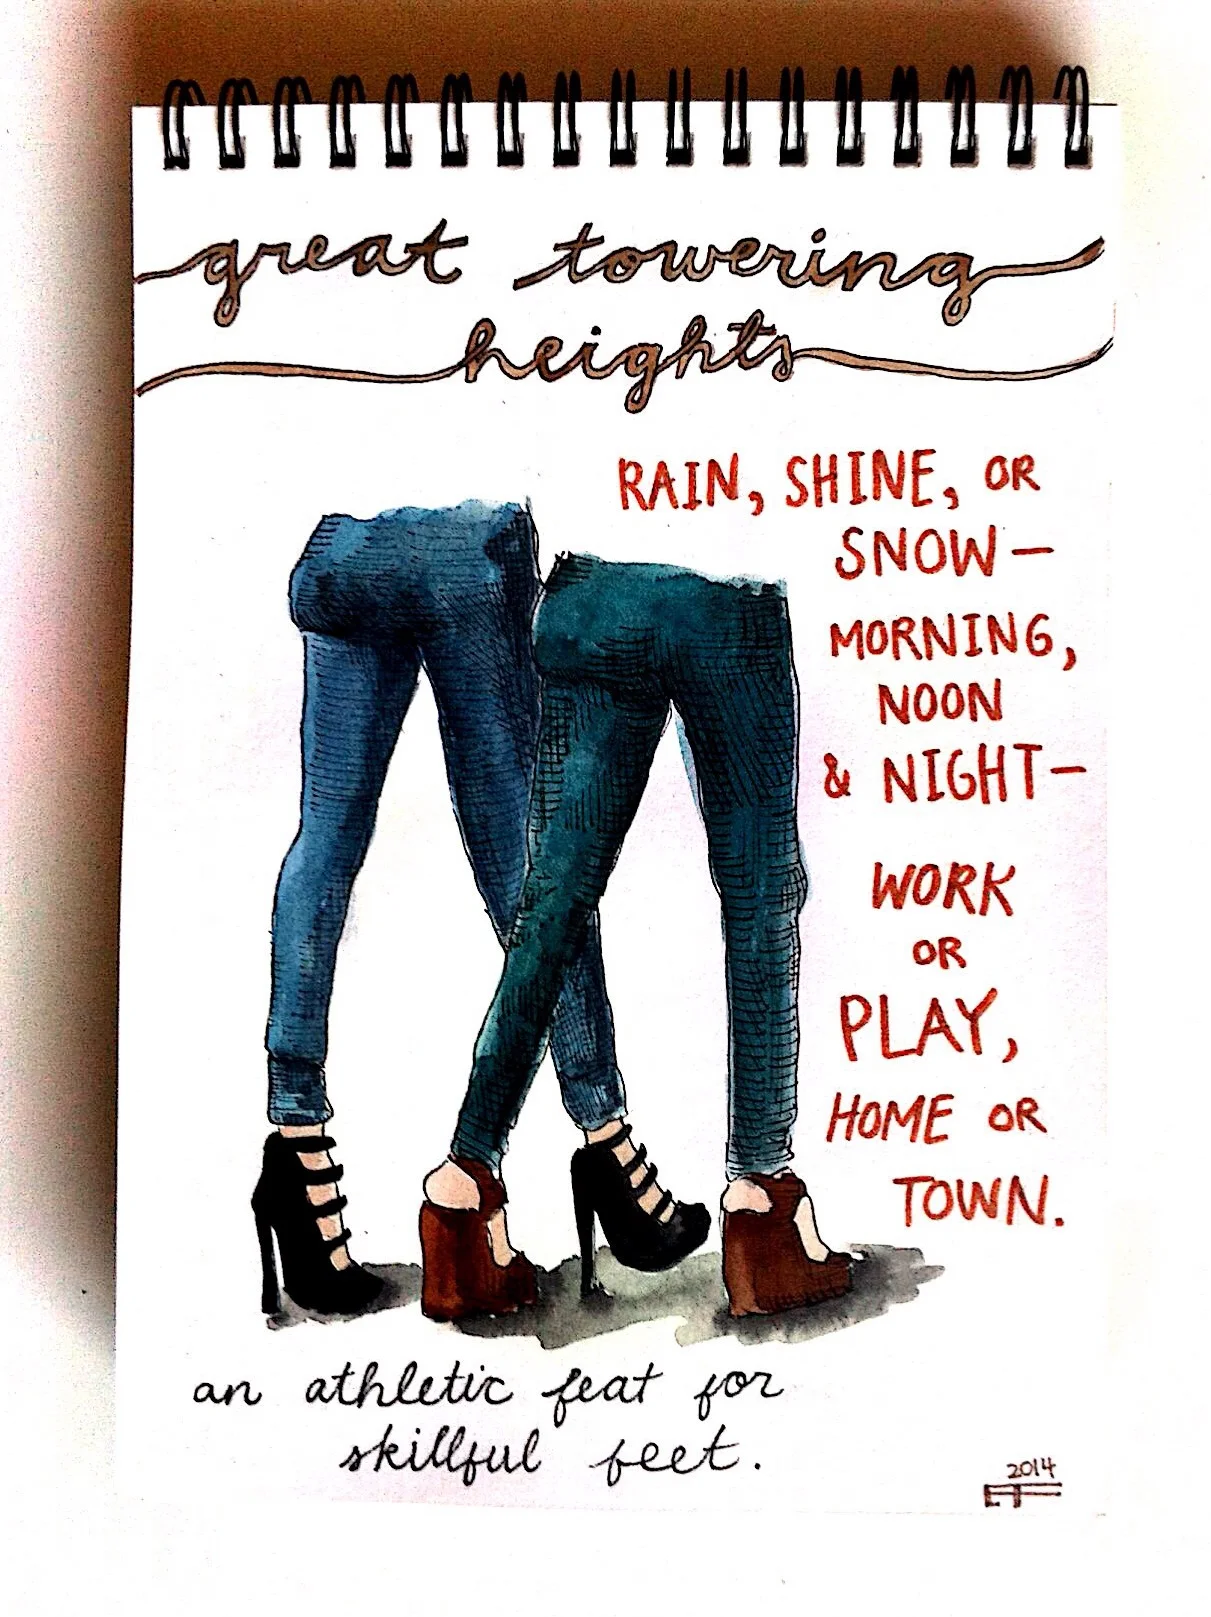 great towering
heights
RAIN, SHINE, OR
SNOW—
MORNING,
NOON
& NIGHT—
WORK
OR
PLAY,
HOME OR
TOWN.
an athletic feat for
skillful feet.
2014